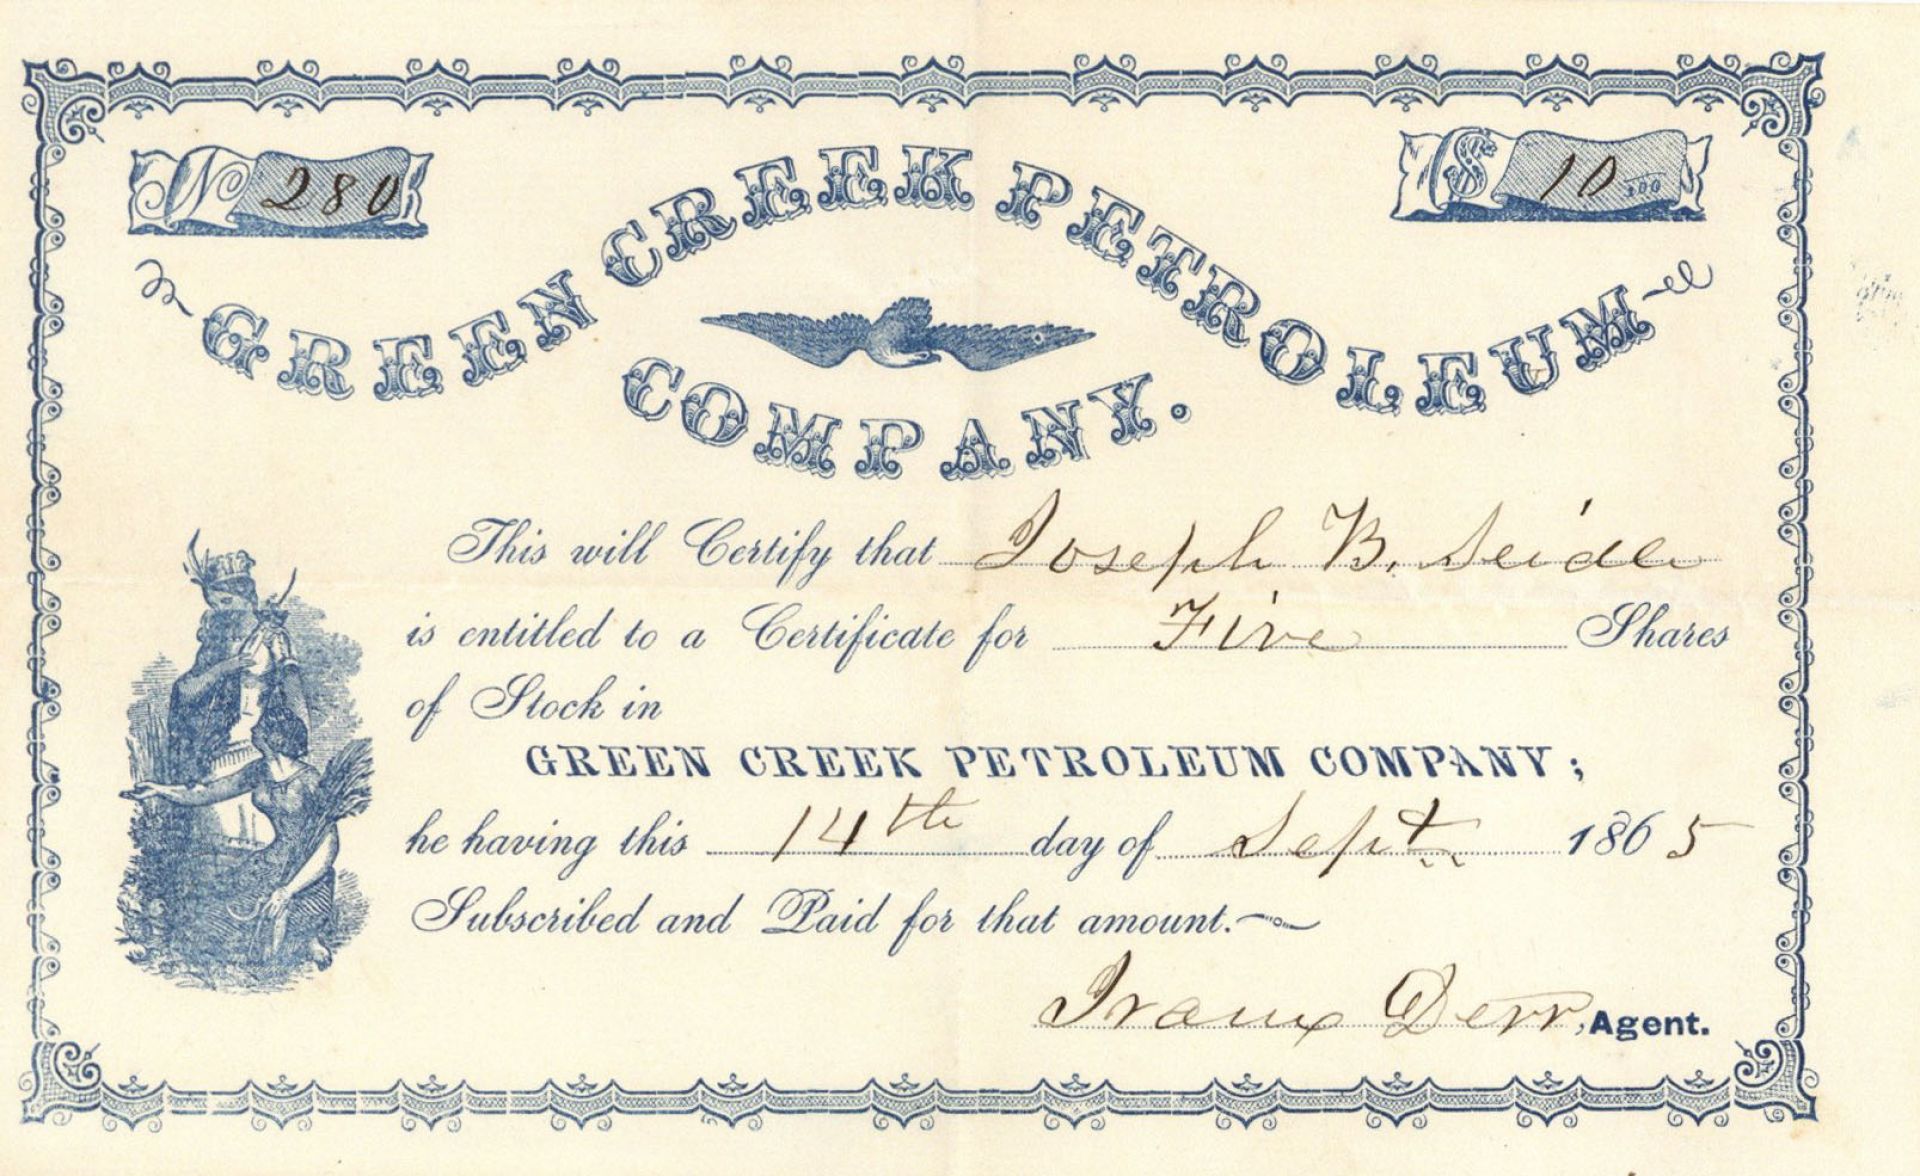 No 280
$ 10 100
GREEN CREEK PETROLEUM
COMPANY.
This will Certify that Joseph B. Seidle
is entitled to a Certificate for Five Shares
of Stock in
GREEN CREEK PETROLEUM COMPANY;
he having this 14th day of Sept 1865
Subscribed and Paid for that amount.
Derr, Agent.